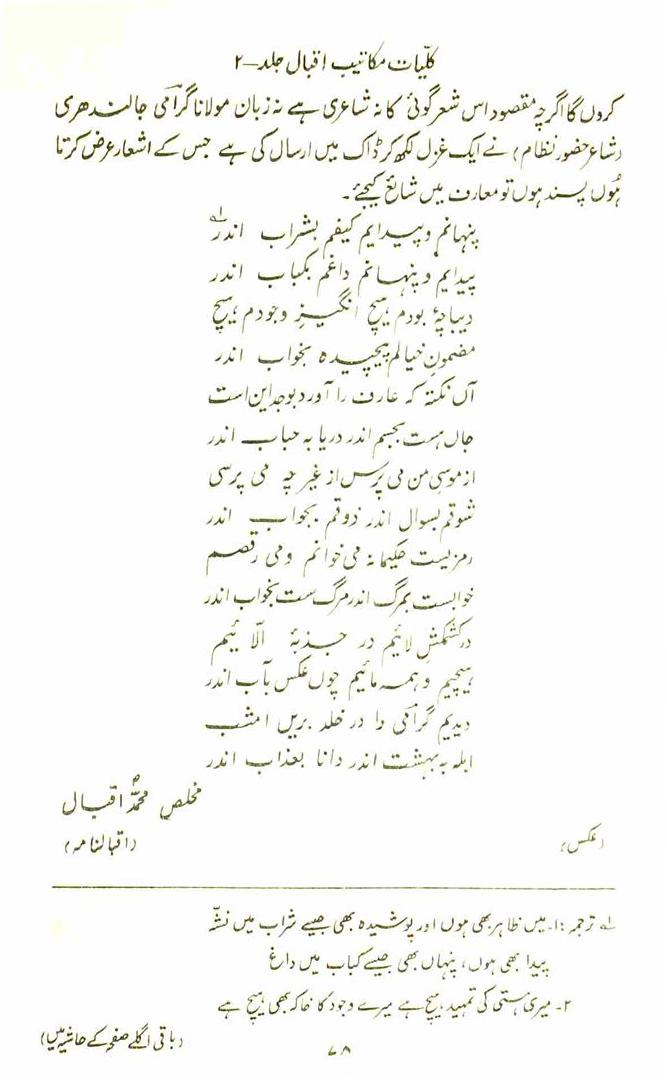 کلّیات مکاتیب اقبال جلد–۲
کروں گا اگرچہ مقصود اس شعر گوئی کا نہ شاعری ہے نہ زبان مولانا گرامی جالندھری
(شاعر حضور نظام) نے ایک غزل لکھ کر ڈاک میں ارسال کی ہے جس کے اشعار عرض کرتا
ہُوں پسند ہوں تو معارف میں شائع کیجئے۔
پنہانم و پیدایم کیفم بشراب اندر لہ
پیدایم و پنہانم داغم بکباب اندر
دیباچۂ بودم ہیچ انگیزِ وجودم ہیچ
مضمونِ خیالم پیچیدہ بخواب اندر
آں نکتہ کہ عارف را آورد بوجد این است
جاں ہست بجسم اندر دریا بہ حباب اندر
از موسیِ من می پرس از غیر چہ می پرسی
شوقم بسوال اندر ذوقم بجواب اندر
رمزیست حکیمانہ می خوانم و می رقصم
خوابست بمرگ اندر مرگ ست بخواب اندر
در کشمکشِ لائیم در جذبۂ الّا ئیم
ہیچیم و ہمہ مائیم چوں عکس بآب اندر
دیدیم گرامی را در خلد بریں امشب
ابلہ بہ بہشت اندر دانا بعذاب اندر
مخلص محمدؐ اقبال
(عکس)                (اقبالنامہ)
لہ ترجمہ: ۱۔ میں ظاہر بھی ہوں اور پوشیدہ بھی جیسے شراب میں نشّہ
پیدا بھی ہوں، پنہاں بھی جیسے کباب میں داغ
۲۔ میری ہستی کی تمہید ہیچ ہے میرے وجود کا خاکہ بھی ہیچ ہے
(باقی اگلے صفحہ کے حاشیہ میں)
۷۸